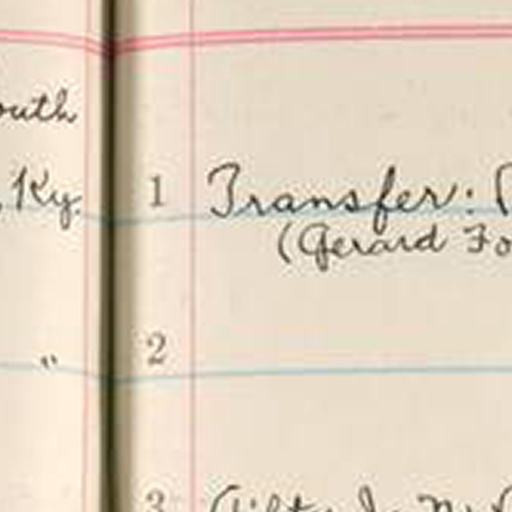 outh
Ky.
1 Transfer:
(Gerard Fo
"
2
3